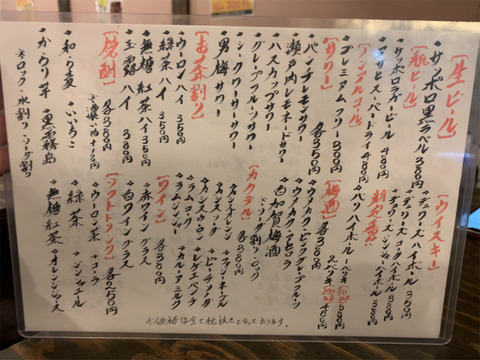 【生ビール】
サッポロ黒ラベル 380円
【瓶ビール】
サッポロラガービール 480円
アサヒスーパードライ 480円
【ノンアルコール】
プレミアムフリー 380円
【サワー】 各350円
パンチレモンサワー
瀬戸内レモネードサワー
ハスカップサワー
グレープフルーツサワー
シークワーサーサワー
男梅サワー
【お茶割り】
ウーロンハイ 350円
緑茶ハイ 350円
無糖紅茶ハイ 350円
玉露ハイ 380円
【焼酎】 各380円
和ら麦
いいちこ
からり芋
黒霧島
※ロック・水割り・ソーダ割り
【ウイスキー】
デュワーズハイボール 350円
デュワーズコークハイボール 380円
デュワーズジンジャーハイボール 380円
新発売!!
【梅酒】 各380円
ウメカク・ピンクグレフル
ウメカク・アセロラ
白加賀梅酒
※ソーダ割・ロック
【カクテル】 各380円
カシスオレンジ
カシスソーダ
カシスウーロン
ラムコーク
ラムジンジャー
ファジーネーブル
ピーチフィズ
レゲエパンチ
カルーアミルク
【ワイン】 各380円
赤ワイン グラス
白ワイン グラス
【ソフトドリンク】 各250円
ウーロン茶
緑茶
無糖紅茶
コーラ
ジンジャエール
オレンジジュース
※価格は全て税抜きとなっております。